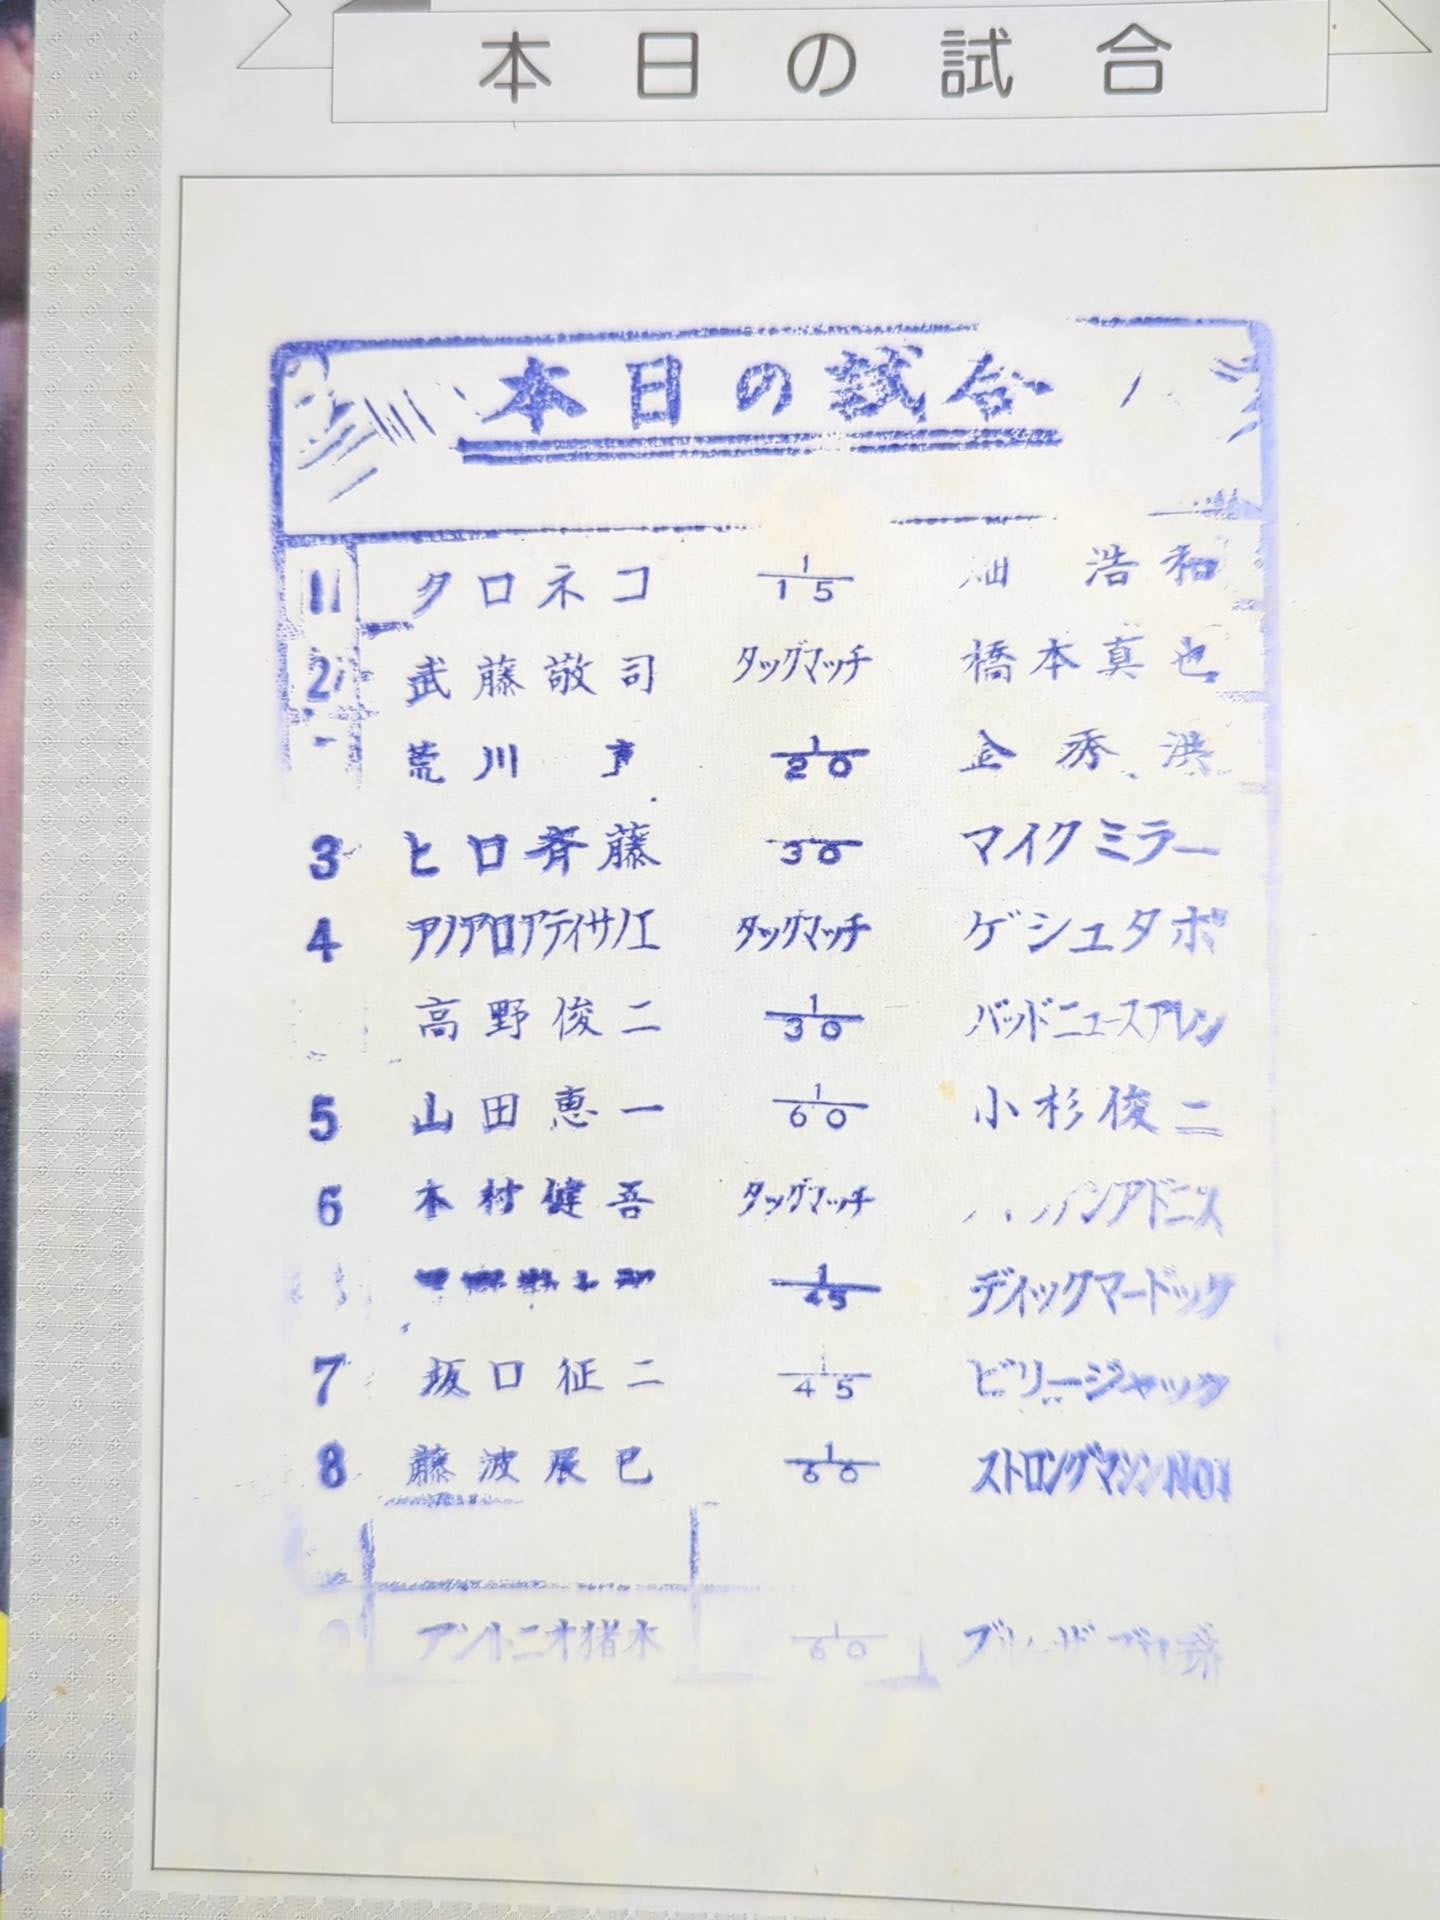 本日の試合
本日の試合
1 タロネコ 1/15 畑 浩和
2 武藤敬司 タッグマッチ 橋本真也
荒川 1/20 金秀洪
3 ヒロ斉藤 30 マイクミラー
4 アノアロアティサノエ タッグマッチ ゲシュタポ
高野俊二 1/30 バッドニュースアレン
5 山田恵一 1/60 小杉俊二
6 木村健吾 タッグマッチ アドニス
1/45 ディックマードック
7 坂口征二 1/45 ビリージャック
8 藤波辰巳 1/60 ストロングマシンNO1
アントニオ猪木 1/60